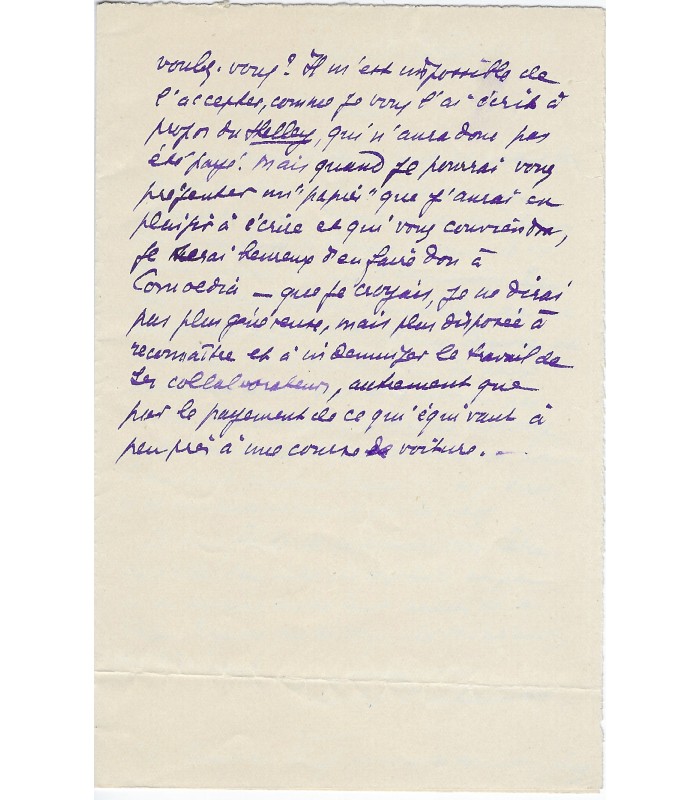 voulez-vous? Il m'est impossible de
l'accepter, comme je vous l'ai écrit à
propos du Shelley, qui n'aura donc pas
été payé. Mais quand je pourrai vous
présenter un "papier" que j'aurai eu
plaisir à écrire et qui vous conviendra,
je serai heureux d'en faire don à
Comoedia — que je croyais, je ne dirai
pas plus généreuse, mais plus disposée à
reconnaître et à indemniser le travail de
ses collaborateurs, autrement que
par le payement de ce qui équivaut à
peu près à une course de voiture. —